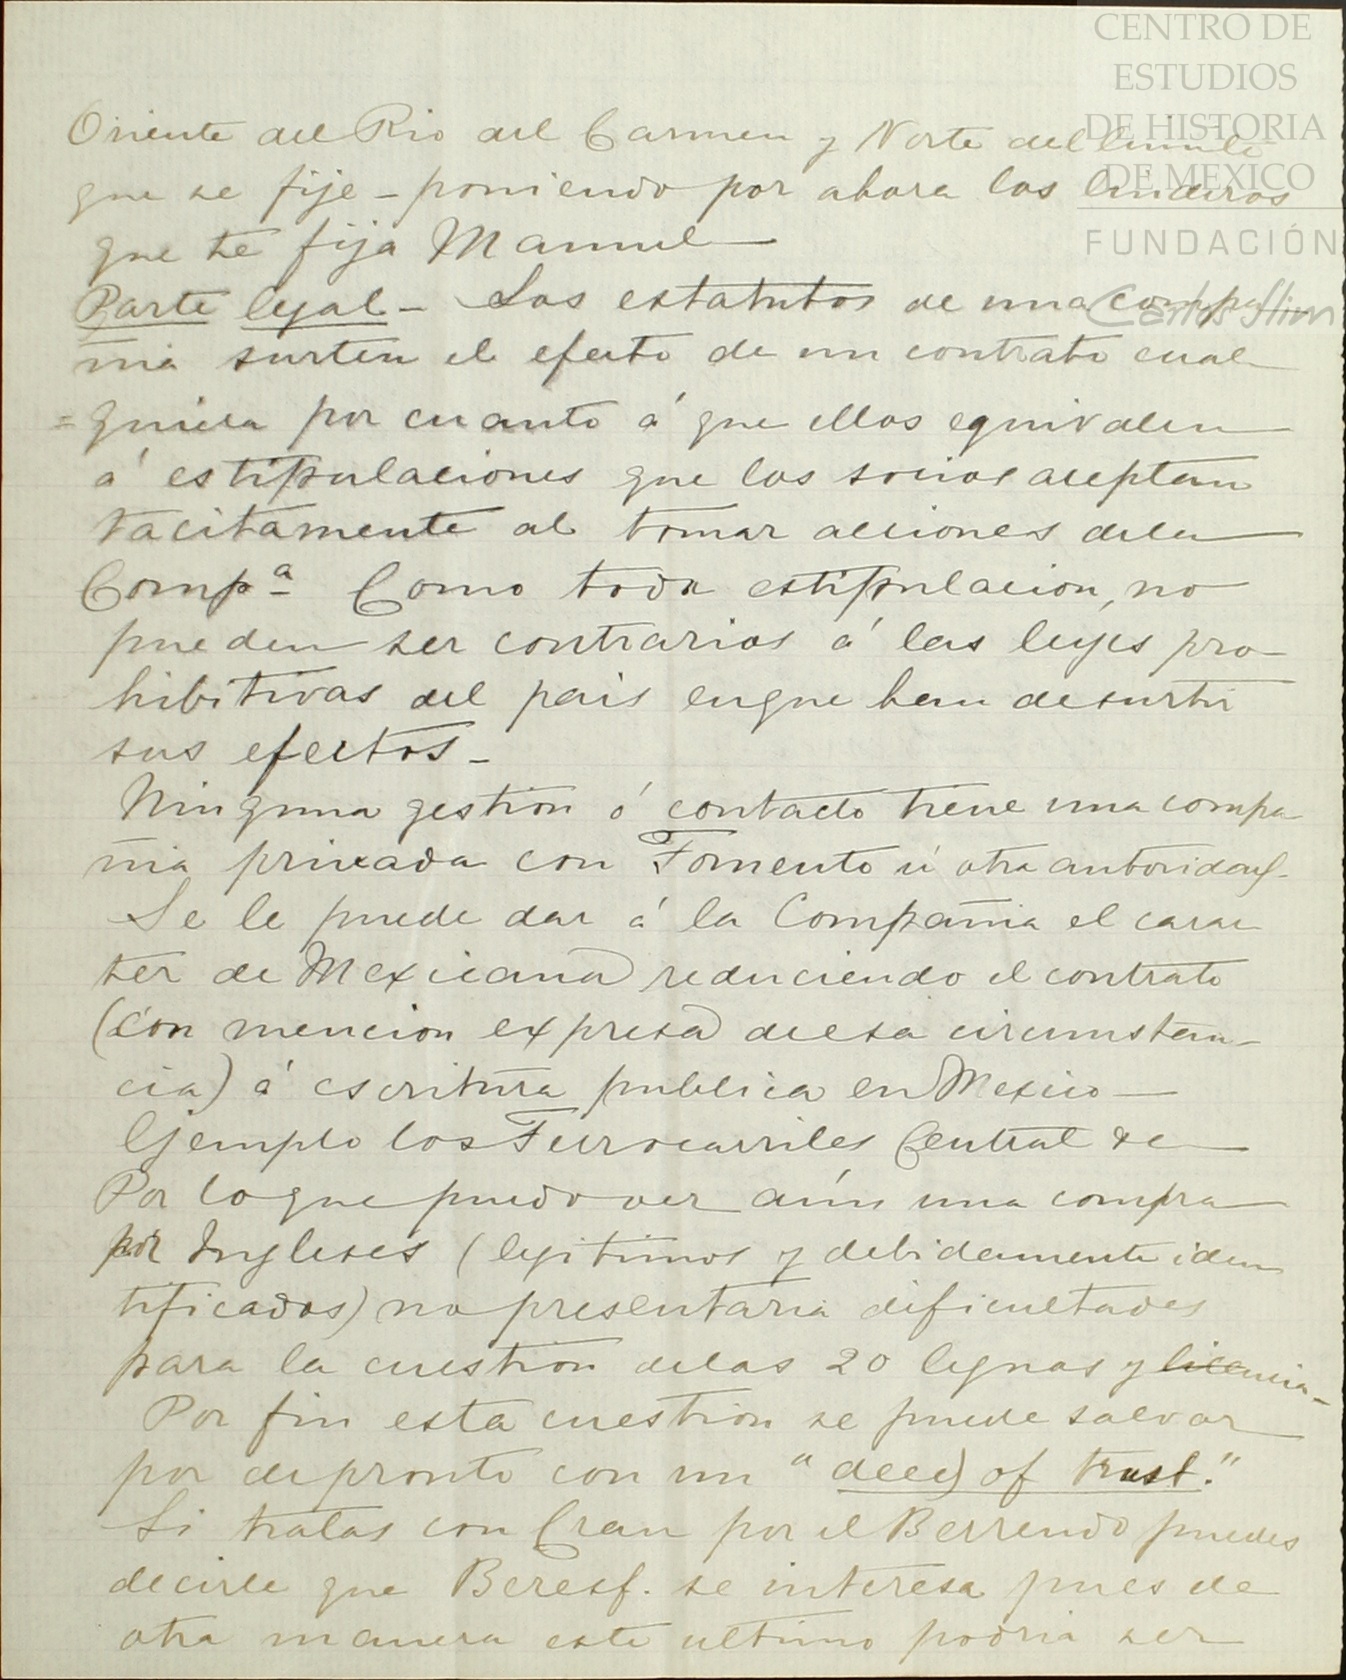 CENTRO DE
ESTUDIOS
DE HISTORIA
DE MEXICO
FUNDACIÓN
Carlos Slim
Oriente del Rio del Carmen y Norte del limite
que se fije - poniendo por ahora los linderos
que te fija Manuel
Parte legal - Los estatutos de una compa
ñia surten el efecto de un contrato cual
= quiera por cuanto á que ellos equivalen
á estipulaciones que los socios aceptan
tacitamente al tomar acciones dela
Compª Como toda estipulacion, no
pueden ser contrarios á las leyes pro-
hibitivas del pais enque han desurtir
sus efectos -
Ninguna gestion ó contacto tiene una compa
ñia privada con Fomento ú otra autoridad -
Se le puede dar á la Compañia el carac
ter de Mexicana reduciendo el contrato
(con mencion expresa deesa circumstan-
cia) á escritura publica en Mexico -
Ejemplo los Ferrocarriles Central &c
Por loque puedo ver aún una compra
por Ingleses (legitimos y debidamente iden
tificados) no presentaria dificultades
para la cuestion delas 20 leguas y licencia -
Por fin esta cuestion se puede salvar
por depronto con un "deed of trust."
Si tratas con Cran por el Berrendo puedes
decirle que Beresf. se interesa pues de
otra manera este ultimo podria ser